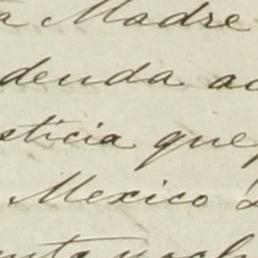 a Madre
denda a
sticia que
Mexico